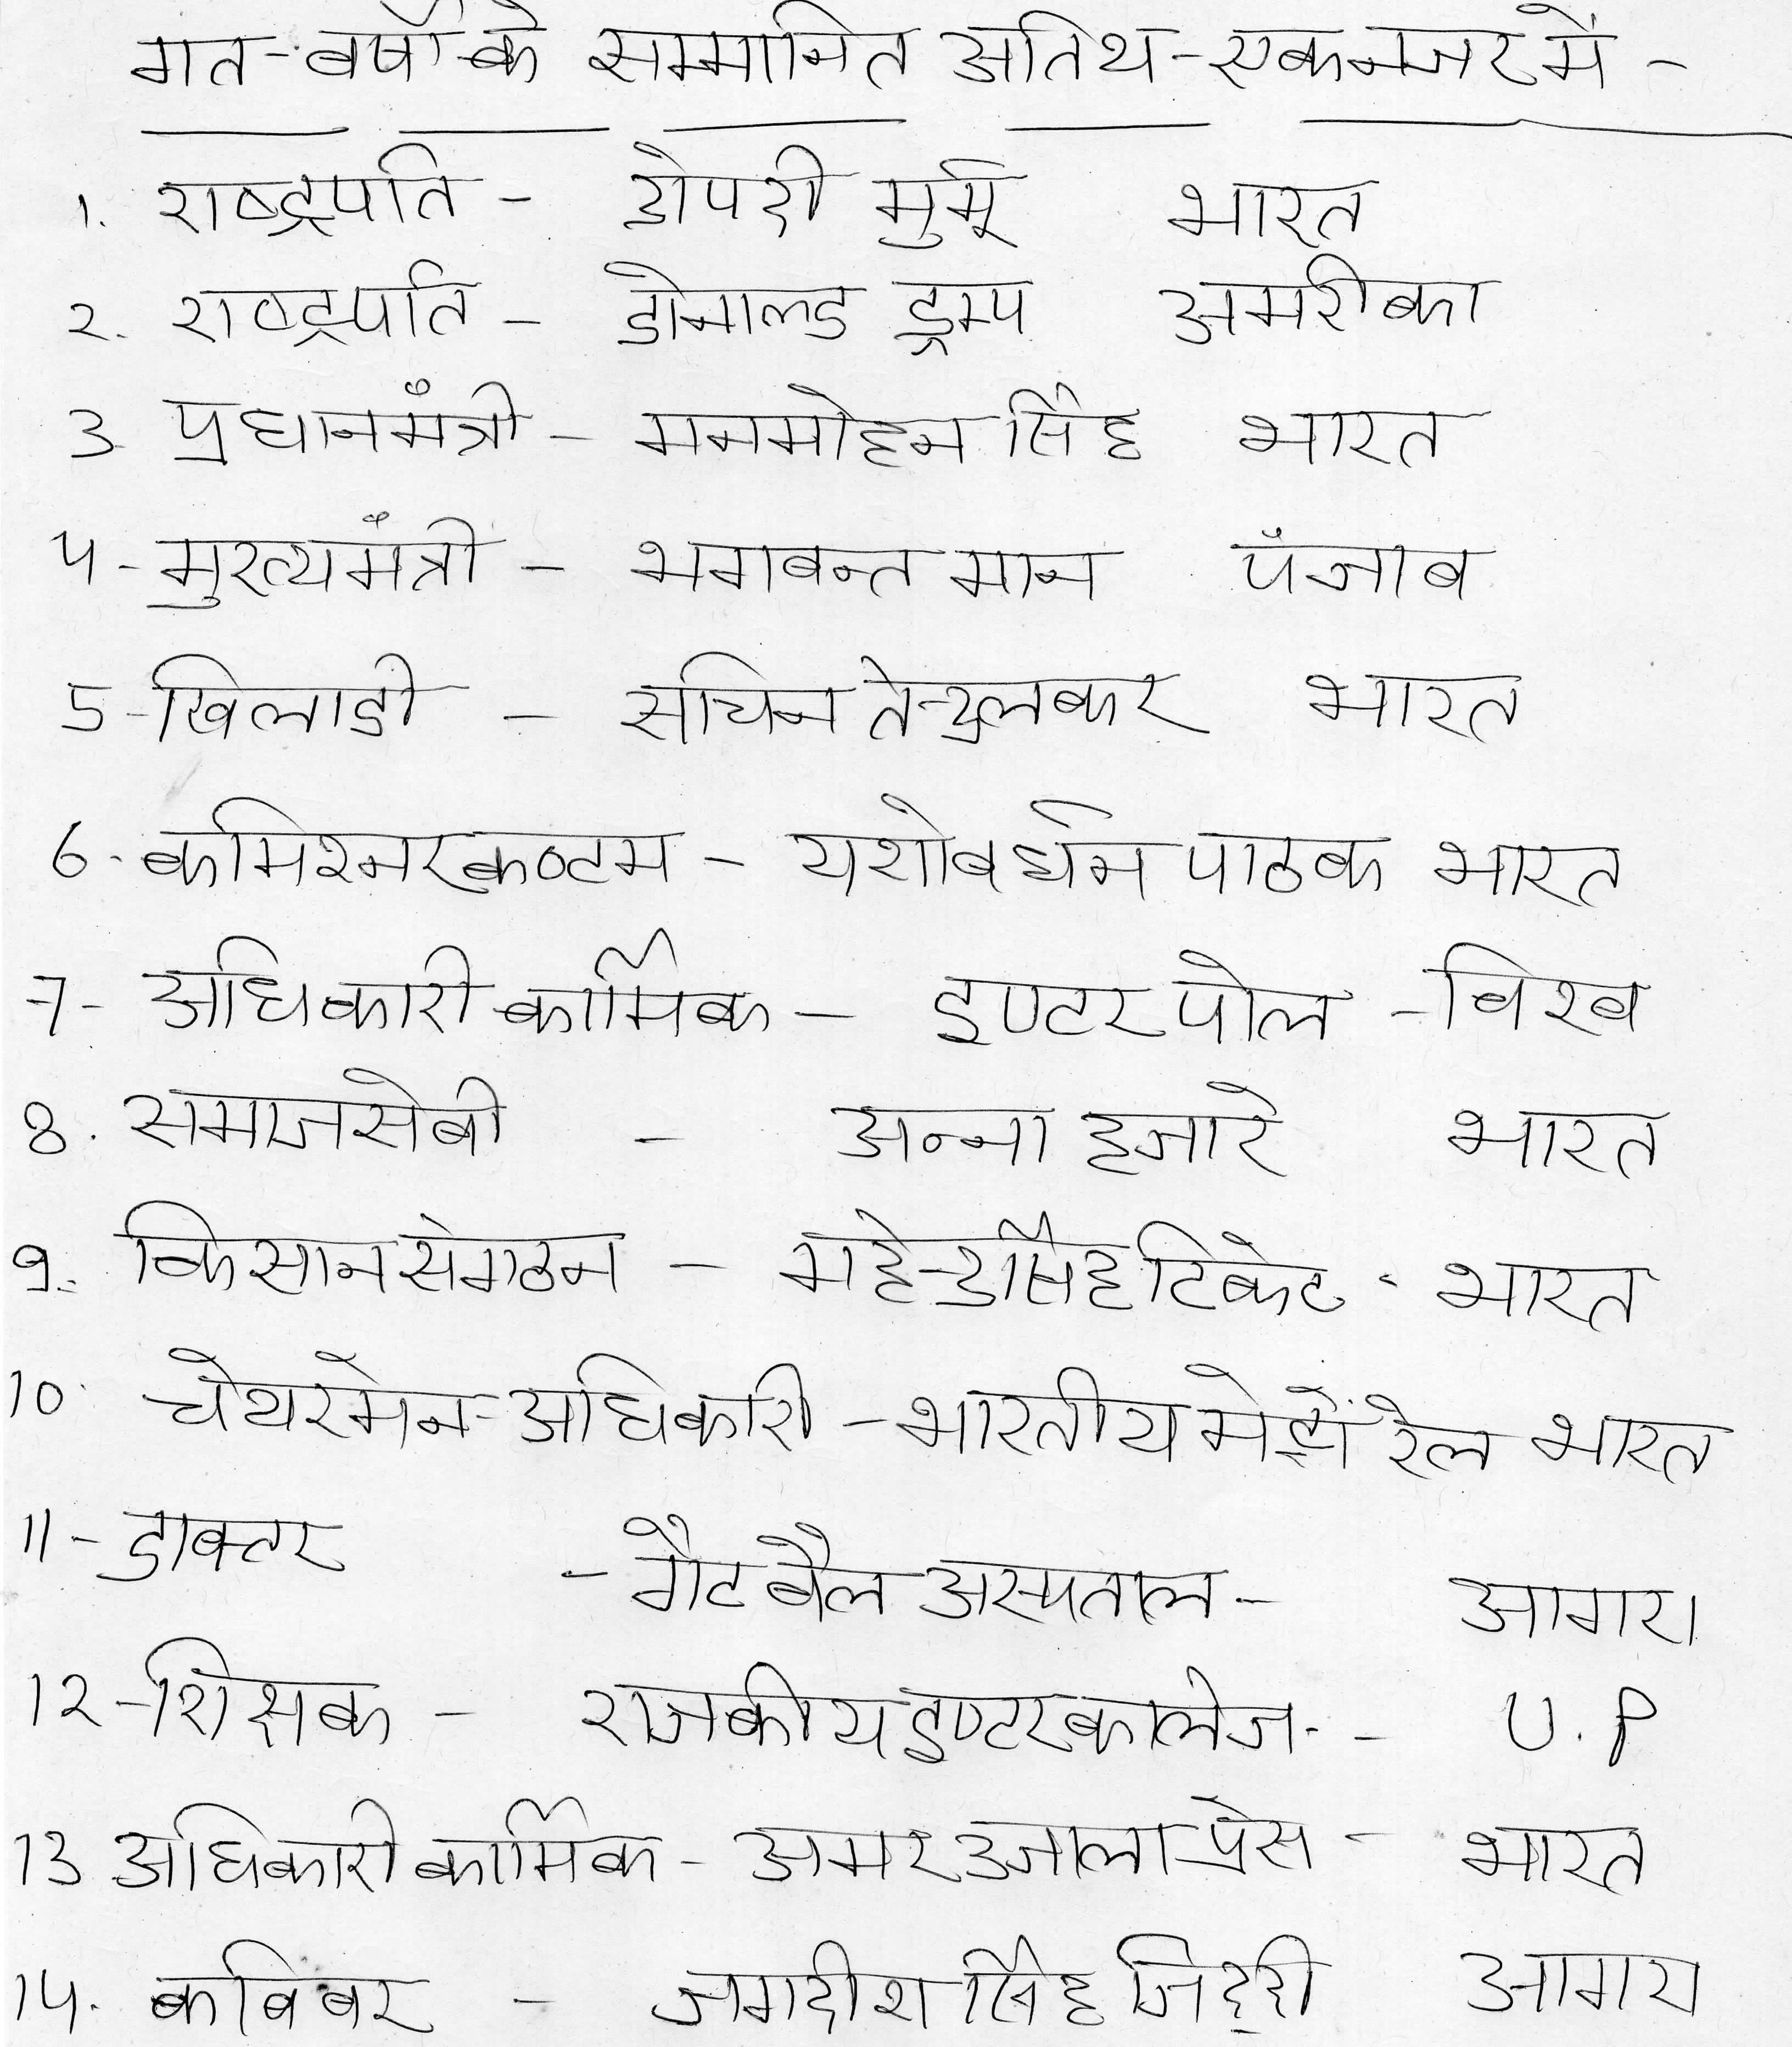 गत-बर्षो के सम्मानित अतिथ-एकनजर में -
1. राष्ट्रपति - द्रोपदी मुर्मू भारत
2. राष्ट्रपति - डोनाल्ड ट्रम्प अमरीका
3 प्रधानमंत्री - मनमोहन सिंह भारत
4 - मुख्यमंत्री - भगबन्त मान पंजाब
5 - खिलाडी - सचिन तेन्दुलकर भारत
6 - कमिश्नर कष्टम - यशोबर्धन पाठक भारत
7 - अधिकारी कार्मिक - इण्टरपोल - बिश्ब
8. समाजसेबी - अन्ना हजारे भारत
9. किसान संगठन - महेन्द्रसिंह टिकेट - भारत
10 चेयरमेन-अधिकारी - भारतीय मेट्रों रेल भारत
11 - डाक्तर - गैटबैल अस्पताल - आगरा
12 - शिक्षक - राजकीय इण्टर कालेज - U.P
13 अधिकारी कार्मिक - अमर उजाला प्रेस - भारत
14. कबिबर - जगदीश सिंह जिद्दी आगरा